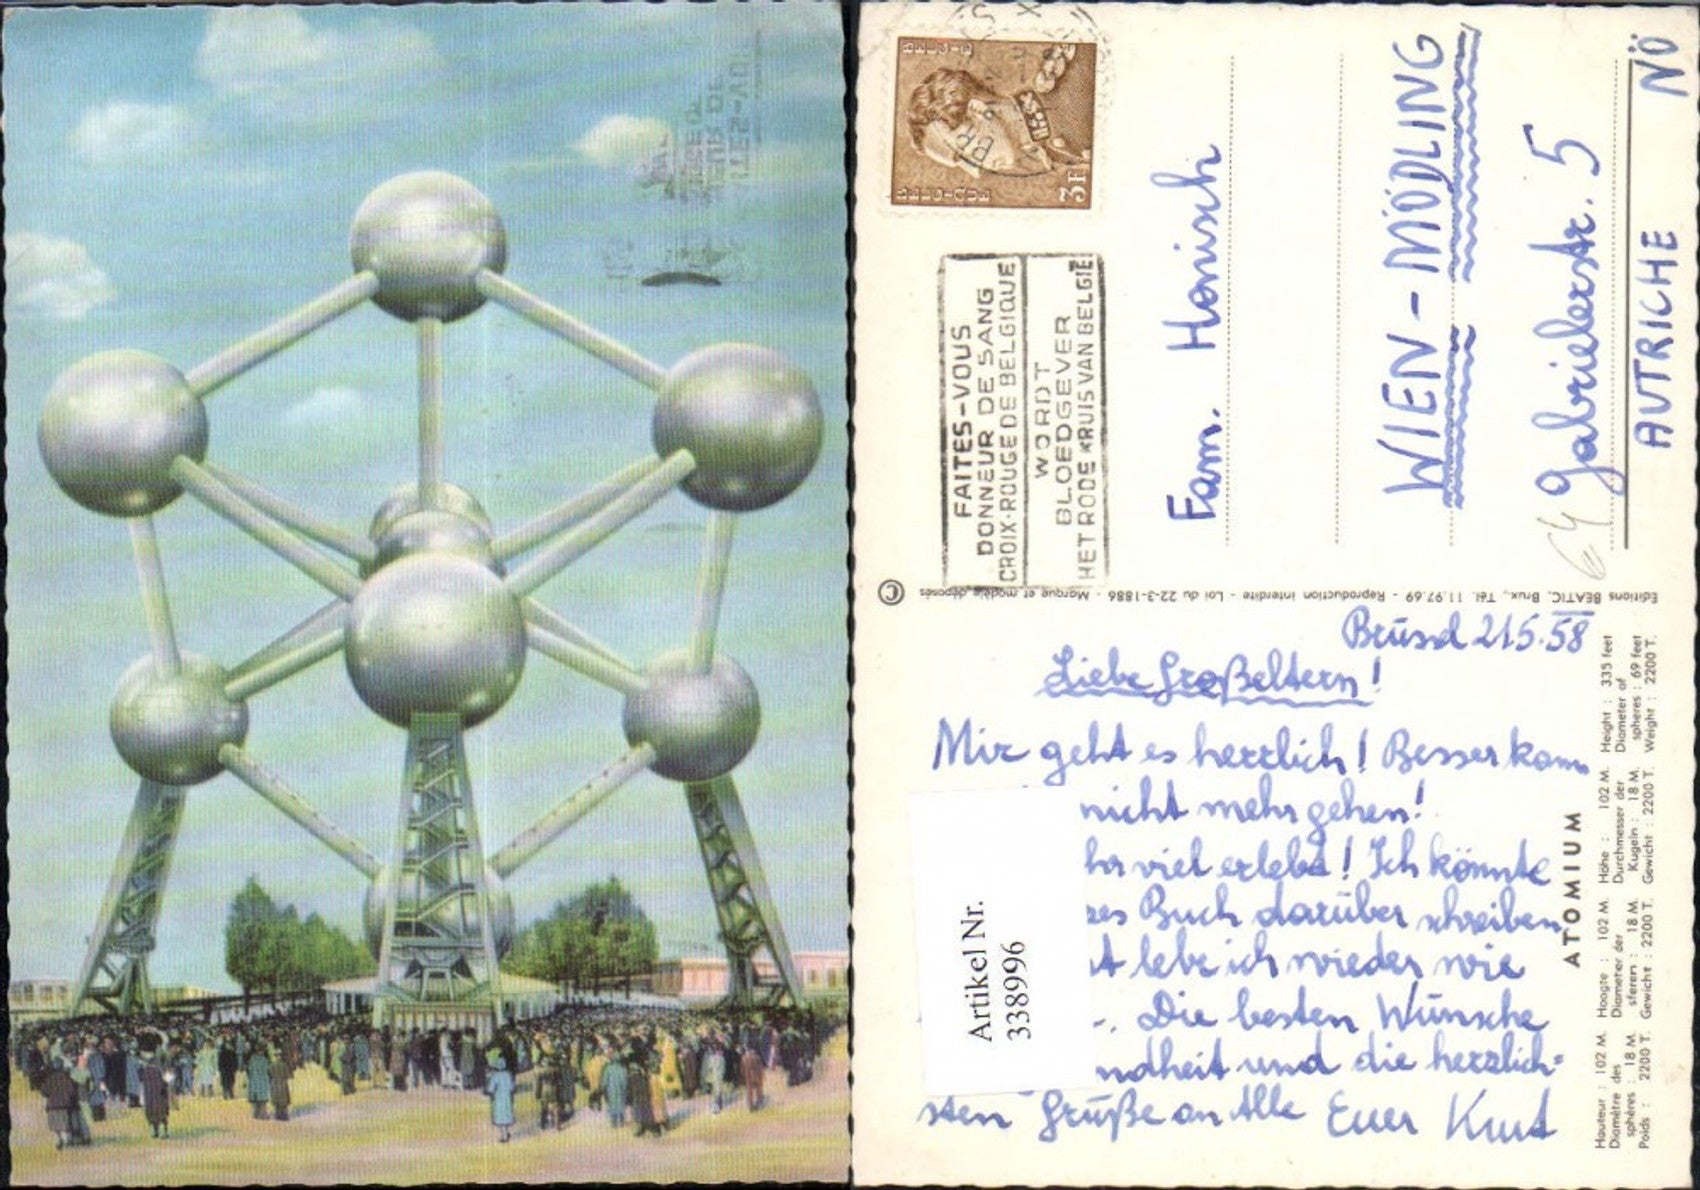 BELGIE
BELGIQUE
3F
FAITES-VOUS
DONNEUR DE SANG
CROIX-ROUGE DE BELGIQUE
WORDT
BLOEDGEVER
HET RODE KRUIS VAN BELGIE
Fam. Honisch
WIEN - MÖDLING
Gabrielerstr. 5
64
AUTRICHE NÖ
Editions BEATIC, Brux., Tél. 11.97.69 - Reproduction interdite - Loi du 22-3-1886 - Marque et modèle déposés ©
Brüssel 21.5.58
Liebe Großeltern!
Mir geht es herrlich! Besser kann
nicht mehr gehen!
viel erlebt! Ich könnte
Buch darüber schreiben
lebe ich wieder wie
Die besten Wünsche
ndheit und die herzlich=
sten Grüße an Alle Euer Kurt
Artikel Nr.
3389996
ATOMIUM
Hauteur : 102 M. Hoogte : 102 M. Höhe : 102 M. Height : 335 feet
Diamètre des Diameter der Durchmesser der Diameter of
sphères : 18 M. sferen : 18 M. Kugeln : 18 M. spheres : 69 feet
Poids : 2200 T. Gewicht : 2200 T. Gewicht : 2200 T. Weight : 2200 T.